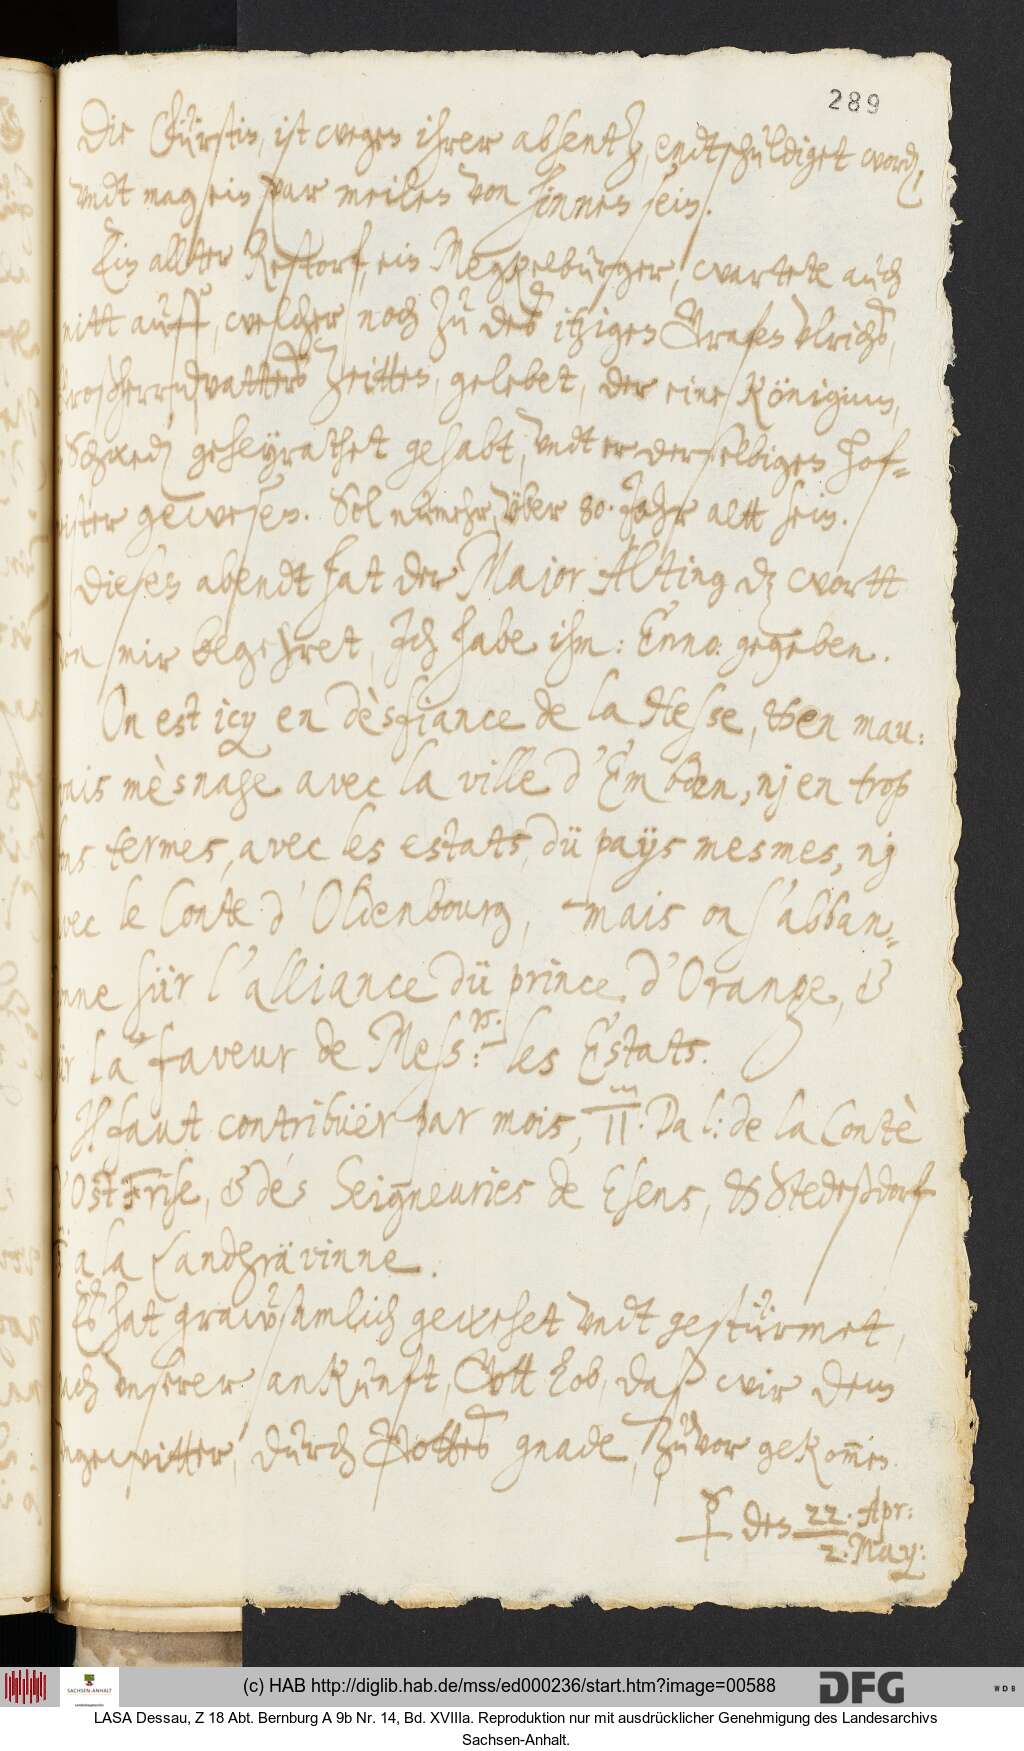 289
Die Fürstin, ist wegen ihrer absentz, endtschuldiget word,
undt mag ein par meilen von hinnen sein.
Ein allter Restorf, ein Megkelbürger, wartete auch
mitt auff, welcher noch zu des itzigen Grafen Ulrichs,
Großherrndvatters Zeitten, gelebet, der eine Königinn,
Schwed geheyrathet gehabt, undt er derselbigen hof-
meister gewesen. Sol numehr, über 80. Jahr altt sein.
Diesen abendt hat der Major Alting dz wortt
von mir begehret, Ich habe ihm: Enno: gegeben.
On est icy en dèsfiance de la Hesse, & en mau:
vais mèsnage avec la ville d'Embden, nj en trop
bons termes, avec les estats, dü païs mesmes, nj
avec le Conte d'Oldenbourg, mais on s'abban-
donne sür l'alliance dü prince d'Orange, &
sür la faveur de Mess:rs. les Estats.
Il faut contribüer par mois, II.m Dal: de la Contè
d'OstFrise, & des Seigneuries de Esens, & Stedeßdorf
a la Landgrävinne.
Es hat grawsamlich gewehet undt gestürmet,
nach unserer ankunft, Gott lob, daß wir dem
ungewitter, durch Gottes gnade, zuvor gekommen.
den 22. Apr:
2. May:
(c) HAB http://diglib.hab.de/mss/ed000236/start.htm?image=00588
SACHSEN-ANHALT
DFG
WDB
LASA Dessau, Z 18 Abt. Bernburg A 9b Nr. 14, Bd. XVIIIa. Reproduktion nur mit ausdrücklicher Genehmigung des Landesarchivs
Sachsen-Anhalt.